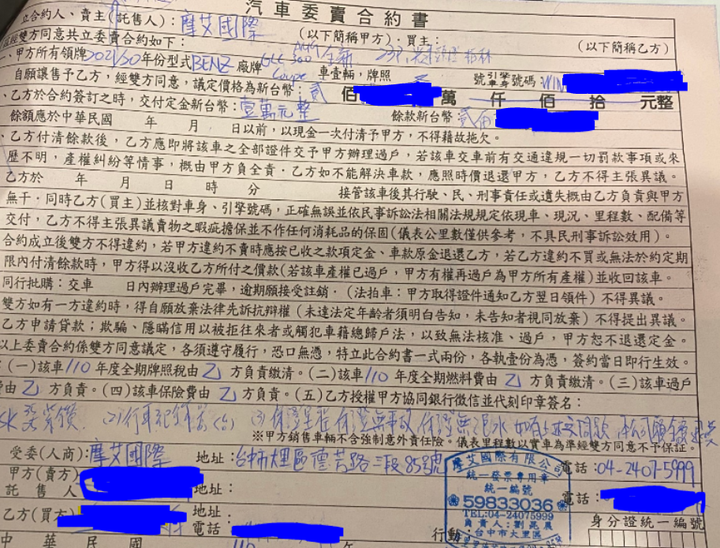 汽車委賣合約書
立合約人、賣主(託售人): 摩艾國際 (以下簡稱甲方)・買主: (以下簡稱乙方)
經雙方同意共立委賣合約如下:
一、甲方所有領牌2021/30年份型式BENZ廠牌 GLC 300 Coupe 車壹輛,牌照 號引擎車身號碼: VIN
自願讓售予乙方,經雙方同意,議定價格為新台幣: 貳 佰 萬 仟 佰 拾 元整
、乙方於合約簽訂之時,交付定金新台幣: 壹萬元整 餘款新台幣貳佰
餘額應於中華民國 年 月 日以前,以現金一次付清予甲方,不得藉故拖欠。
、乙方付清餘款後,乙方應即將該車之全部證件交予甲方辦理過戶,若該車交車前有交通違規一切罰款事項或來
歷不明,產權糾紛等情事,概由甲方負全責。乙方如不能解決車款,應照時價退還甲方,乙方不得主張異議。
乙方於 年 月 日 時 分 接管該車後其行駛、民、刑事責任或遺失概由乙方負責與甲方
無干・同時乙方(買主)並核對車身、引擎號碼,正確無誤並依民事訴訟法相關法規規定依現車、現況、里程數、配備等
交付,乙方不得主張異議貴物之瑕疵擔保並不作任何消耗品的保固(儀表公里數僅供參考,不具民刑事訴訟效用)。
合約成立後雙方不得違約,若甲方違約不賣時應按已收之款項定金、車款原金退還乙方,若乙方違約不買或無法於約定期
限內付清餘款時,甲方得以沒收乙方所付之價款(若該車產權已過戶,甲方有權再過戶為甲方所有產權)並收回該車。
同行批購:交車 日內辦理過戶完畢,逾期願接受註銷,(法拍車:甲方取得證件通知乙方翌日領件)不得異議。
雙方如有一方違約時,得自願放棄法律先訴抗辯權(未達法定年齡者須明白告知,未告知者視同放棄)不得提出異議。
乙方申請貸款;欺騙、隱瞞信用以被拒往來者或觸犯車籍總歸戶法,以致無法核准、過戶,甲方恕不退還定金。
以上委賣合約係雙方同意議定,各須遵守履行,恐口無憑,特立此合約書一式兩份,各執壹份為憑,簽約當日即行生效。
(一)該車110年度全期牌照稅由乙方負責繳清。(二)該車110年度全期燃料費由乙方負責繳清。(三)該車過戶
費由乙方負責。(四)該車保險費由乙方負責。(五)乙方授權甲方協同銀行徵信並代刻印章簽名:
(2)行車紀錄器 (3)保證里程 保證無事故 保證無泡水 如有上述問題
※甲方銷售車輛不含強制意外責任險。儀表里程數以實車為準經雙方同意不予保証。
受委(人商): 摩艾國際 地址: 台中市大里區 路二段85號 電話: 04-2407-5999
甲方(賣方) 地址:
託售人 電話:
乙方(買方) 地址: 身分證統一編號
電話 行動
中華民國 110 年
摩艾國際有限公司
統一發票專用章
統一編號
59833036
TEL:04-24075999
負責人:劉 晨
台中市大里區